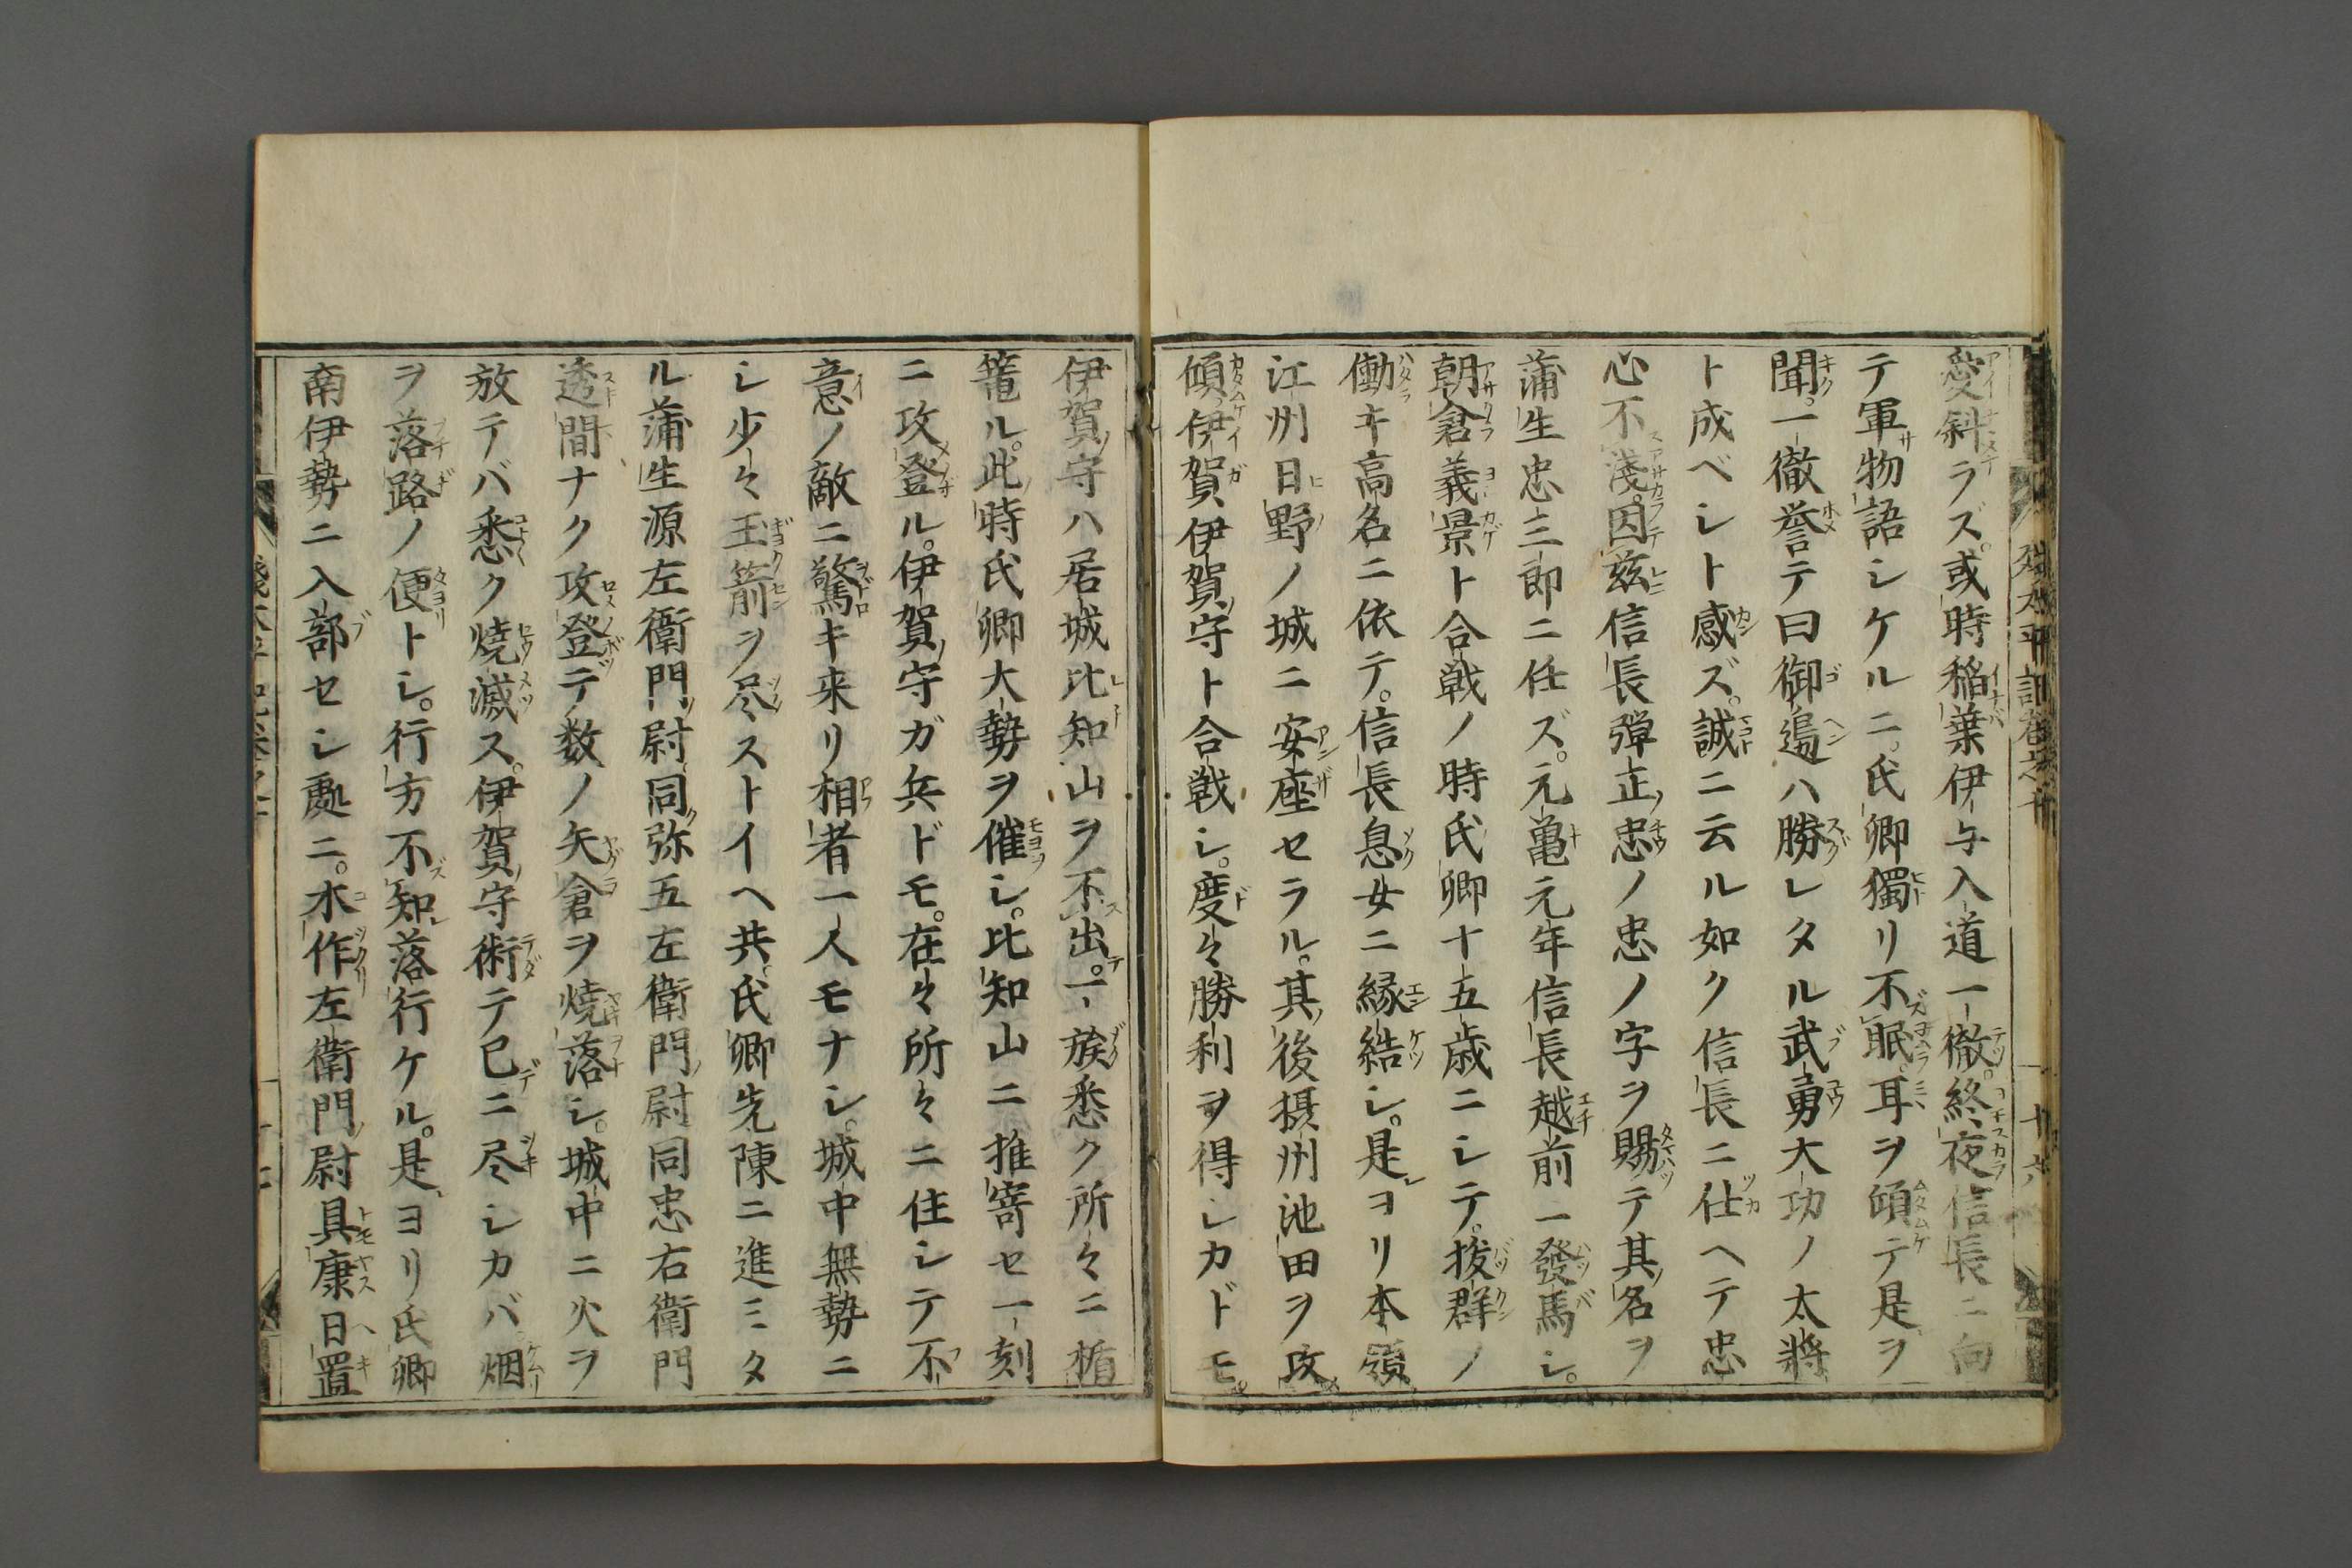 愛斜ラズ。或時稲葉伊与入道一徹。終夜信長ニ向
テ軍物語シケルニ。氏卿獨リ不眠。耳ヲ傾テ是ヲ
聞。一徹誉テ曰御邉ハ勝レタル武勇大功ノ太將
ト成ベシト感ズ。誠ニ云ル如ク信長ニ仕ヘテ忠
心不淺。因茲信長弾正忠ノ忠ノ字ヲ賜テ其名ヲ
蒲生忠三郎ニ任ズ。元亀元年信長越前ー發馬シ。
朝倉義景ト合戦ノ時氏卿十五歳ニシテ。抜群ノ
働キ高名ニ依テ。信長息女ニ縁結シ。是ヨリ本領
江州日野ノ城ニ安座セラル。其後摂州池田ヲ攻
傾伊賀伊賀守ト合戦シ。度々勝利ヲ得シカドモ。
伊賀守ハ居城比知山ヲ不出。一族悉ク所々ニ楯
篭ル。此時氏卿大勢ヲ催シ。比知山ニ推寄セ一刻
ニ攻登ル。伊賀守ガ兵ドモ。在々所々ニ住シテ不
意ノ敵ニ驚キ来リ相者一人モナシ。城中無勢ニ
シ少々玉箭ヲ尽ストイヘ共。氏卿先陳ニ進ミタ
ル蒲生源左衛門尉同弥五左衛門尉同忠右衛門
透間ナク攻登テ数ノ矢倉ヲ焼落シ。城中ニ火ヲ
放テバ悉ク焼滅ス。伊賀守術テ已ニ尽シカバ。烟
ヲ落路ノ便トシ。行方不知落行ケル。是ヨリ氏卿
南伊勢ニ入部セシ處ニ。木作左衛門尉具康日置